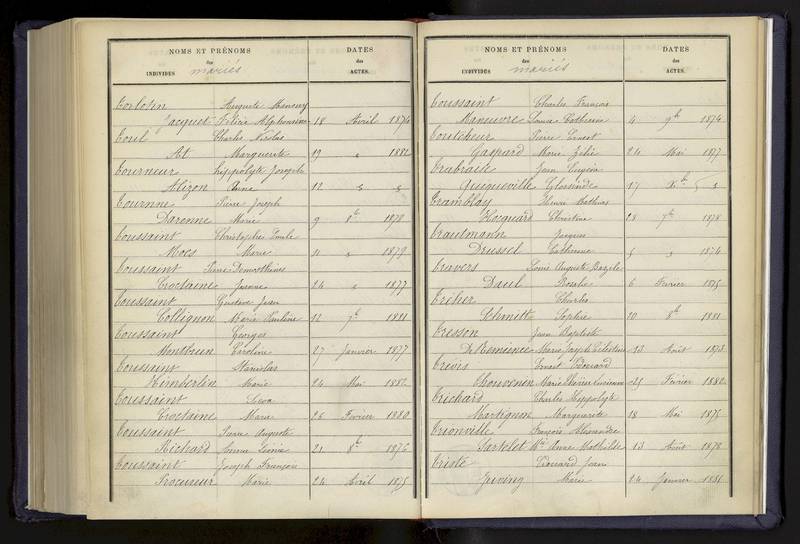 NOMS ET PRÉNOMS
des
INDIVIDUS mariés
DATES
des
ACTES.
Auguste
Jacquet Félicie Alphonsine 18 Avril 1874
Toul Charles Nicolas
At Marguerite 19 " 1882
Tourneur Hippolyte Joseph
Alizon Anne 12 " "
Tournne Pierre Joseph
Daronne Marie 9 8b 1878
Toussaint Christophe Emile
Mocs Marie 11 " 1879
Toussaint Pierre Demosthènes
Troclaine Jeanne 24 " 1877
Toussaint Gustave Jean
Collignon Marie Pauline 12 7b 1881
Toussaint Georges
Caroline 27 Janvier 1877
Toussaint Stanislas
Kimberlin Marie 24 Mai 1882
Toussaint Léon
Troclaine Maria 26 Fevrier 1880
Toussaint Pierre Auguste
Richard Anna 21 8b 1876
Toussaint Joseph François
Procureur Marie 24 Avril 1875
NOMS ET PRÉNOMS
des
INDIVIDUS mariés
DATES
des
ACTES.
Toussaint Charles François
Manuevre Louise Catherine 4 9b 1874
Toutcheur Pierre Ernest
Gaspard Marie Zélie 24 Mai 1877
Jean Eugène
Queuneville Glossinde 17 Xb "
Tramblay Henri Mathias
Hocquard Christine 28 7b 1878
Trautmann Jacques
Drussel Catherine 5 " 1874
Travers Louis Auguste Bazile
Daul Rosalie 6 Fevrier 1875
Tricher Charles
Schmitt Sophie 10 8b 1881
Tresson Jean Baptiste
Marie Joseph Célestine 13 Août 1873
Ernest Edouard
Thouvenin Marie 25 Février 1882
Trichard Charles Hippolyte
Martignon Marguerite 18 Mai 1875
Trionville François Alexandre
Sartelet Mie Anne Mathilde 13 Août 1878
Triste Edouard Jean
Marie 24 Janvier 1881